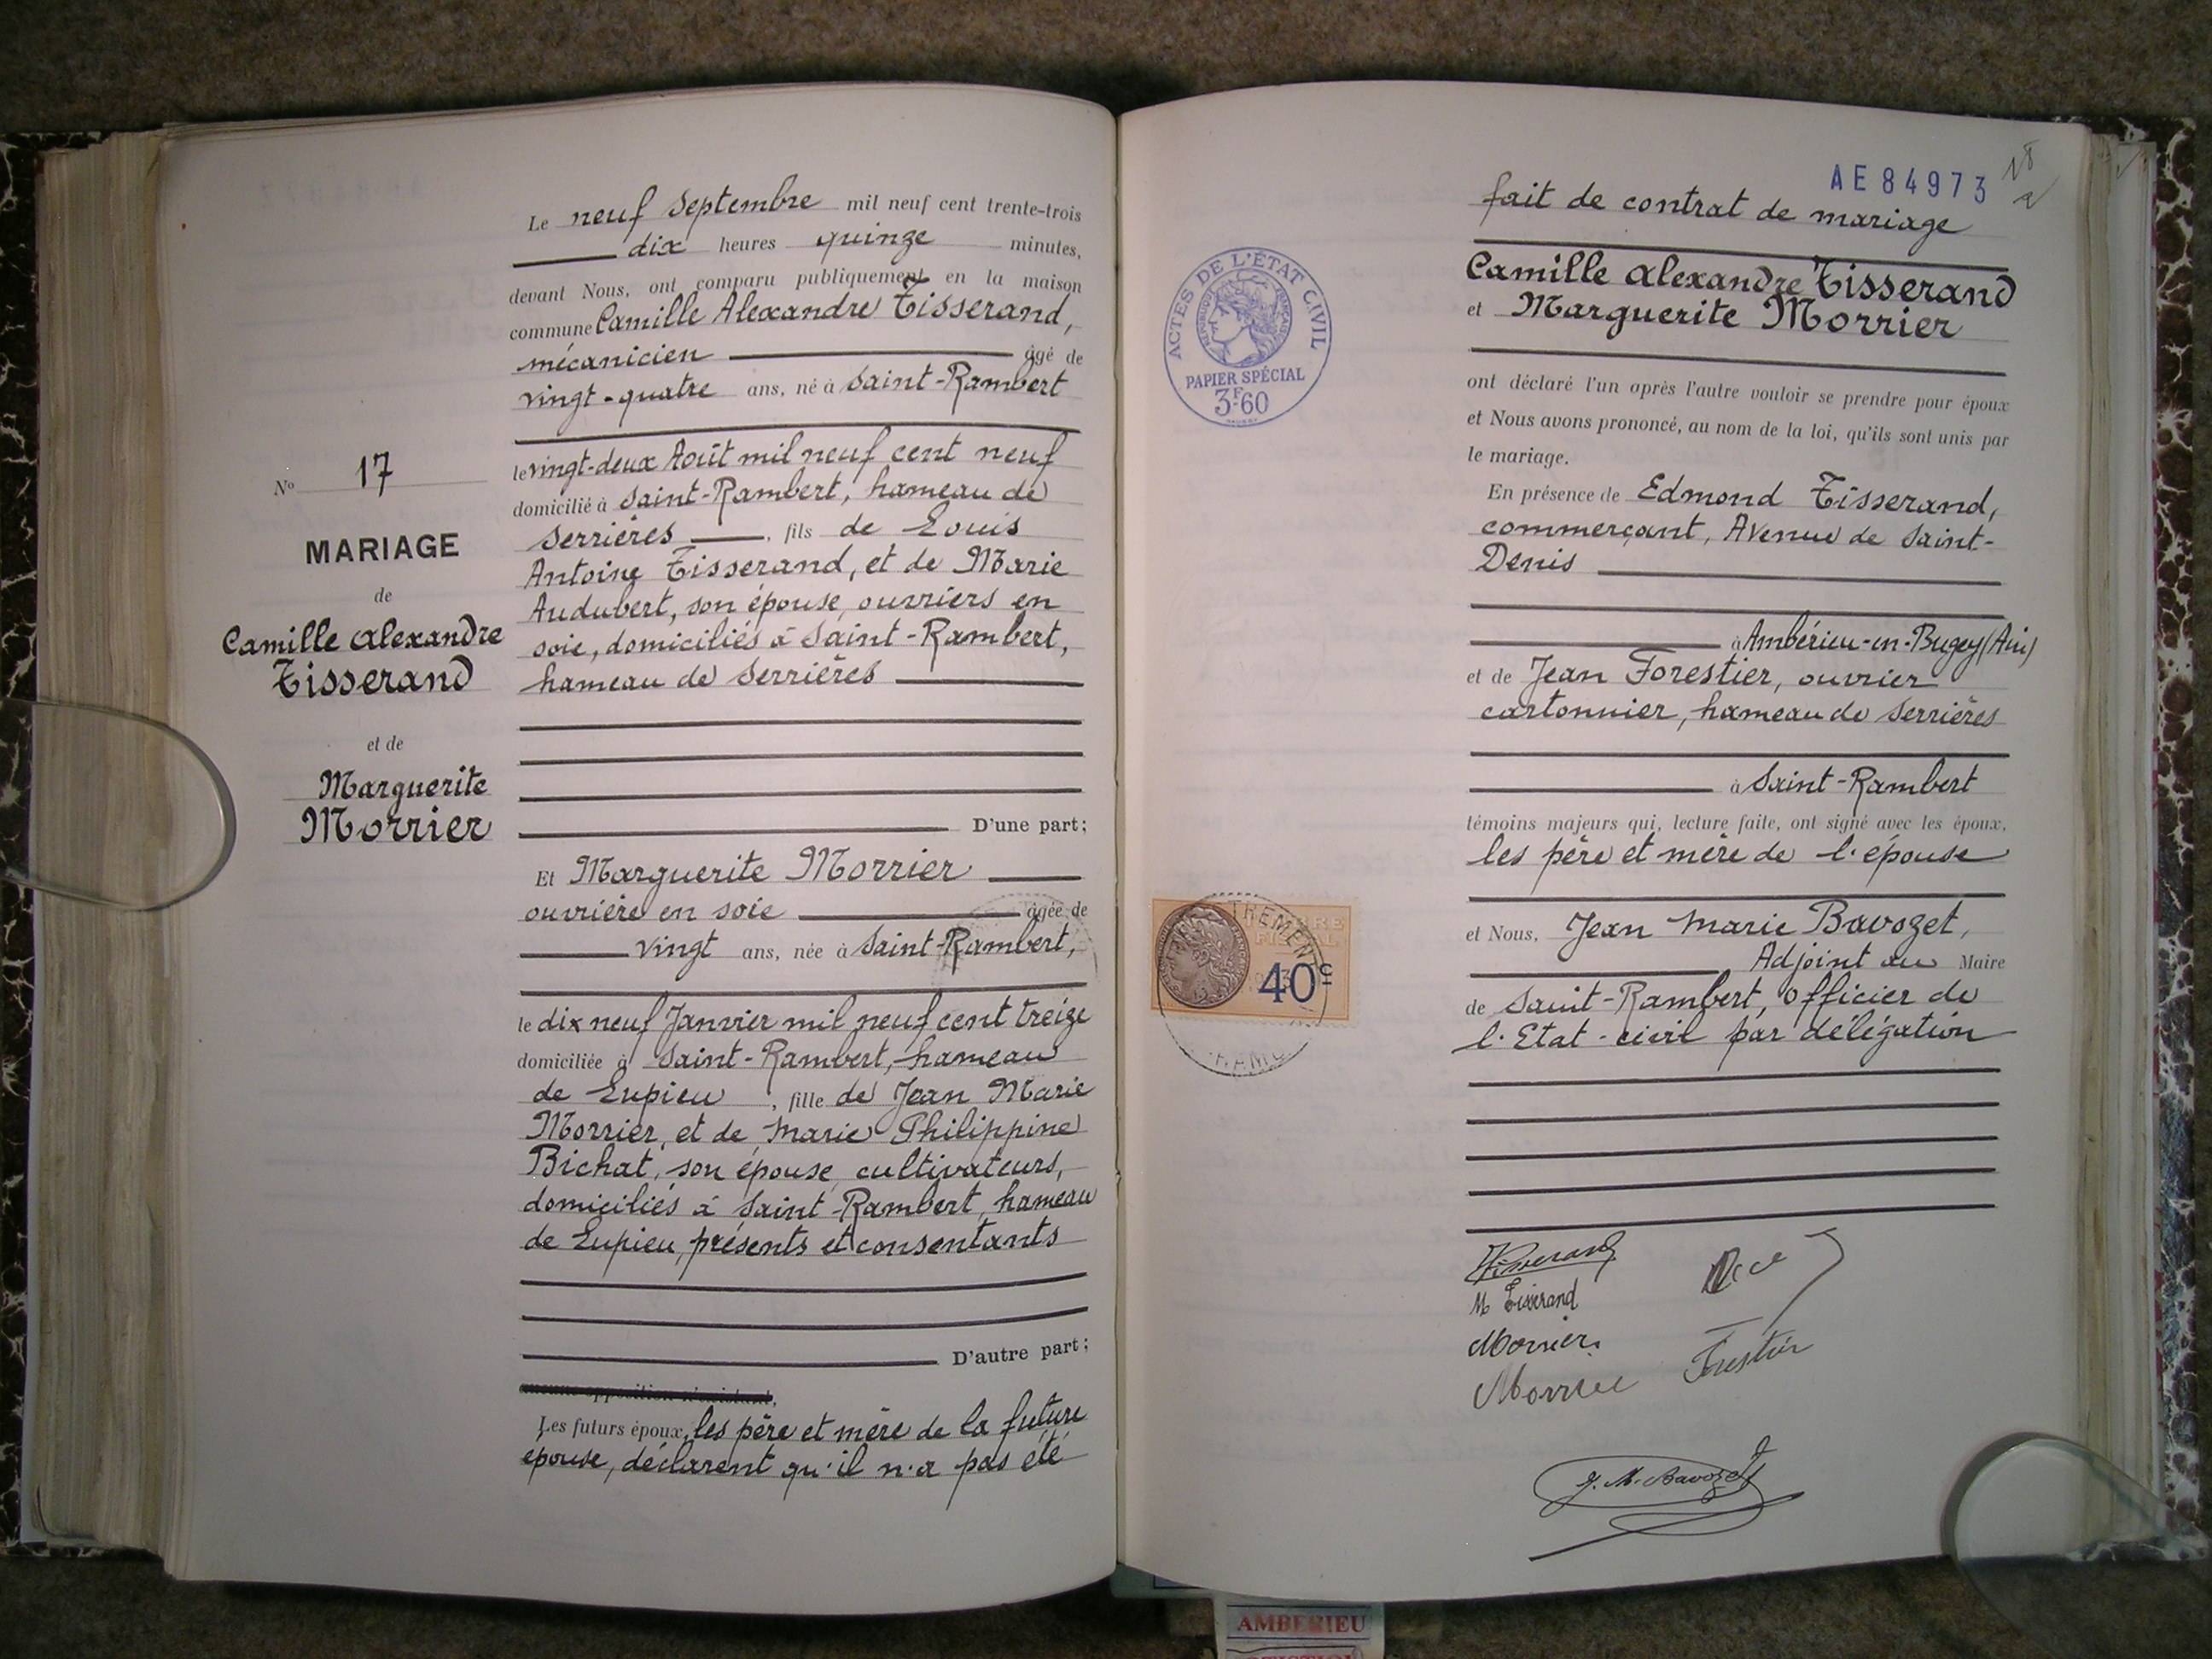 Le neuf Septembre mil neuf cent trente-trois
dix heures quinze minutes,
devant Nous, ont comparu publiquement en la maison
commune Camille Alexandre Tisserand,
mécanicien âgé de
vingt-quatre ans, né à Saint-Rambert
le vingt-deux Août mil neuf cent neuf
domicilié à Saint-Rambert, hameau de
Serrières, fils de Louis
Antoine Tisserand, et de Marie
Audubert, son épouse, ouvriers en
soie, domiciliés à Saint-Rambert,
hameau de Serrières
D'une part;
No 17
MARIAGE
de
Camille Alexandre
Tisserand
et de
Marguerite
Morrier
Et Marguerite Morrier
ouvrière en soie âgée de
vingt ans, née à Saint-Rambert,
le dix neuf Janvier mil neuf cent treize
domiciliée à Saint-Rambert, hameau
de Lupieu, fille de Jean Marie
Morrier, et de Marie Philippine
Bichat, son épouse, cultivateurs,
domiciliés à Saint-Rambert, hameau
de Lupieu, présents et consentants
D'autre part;
Les futurs époux, les père et mère de la future
épouse, déclarent qu'il n'a pas été
AE84973
fait de contrat de mariage
Camille Alexandre Tisserand
et Marguerite Morrier
ont déclaré l'un après l'autre vouloir se prendre pour époux
et Nous avons prononcé, au nom de la loi, qu'ils sont unis par
le mariage.
En présence de Edmond Tisserand,
commerçant, Avenue de Saint-
Denis
à Ambérieu-en-Bugey (Ain)
et de Jean Forestier, ouvrier
cartonnier, hameau de Serrières
à Saint-Rambert
témoins majeurs qui, lecture faite, ont signé avec les époux,
les père et mère de l'épouse
et Nous, Jean Marie Bavozet,
Adjoint au Maire
de Saint-Rambert, Officier de
l'Etat-civil par délégation
Tisserand
M Tisserand
Morrier
Morrier
Forestier
J. M. Bavozet
ACTES DE L'ÉTAT CIVIL
PAPIER SPÉCIAL
3F.60
40c
AMBERIEU